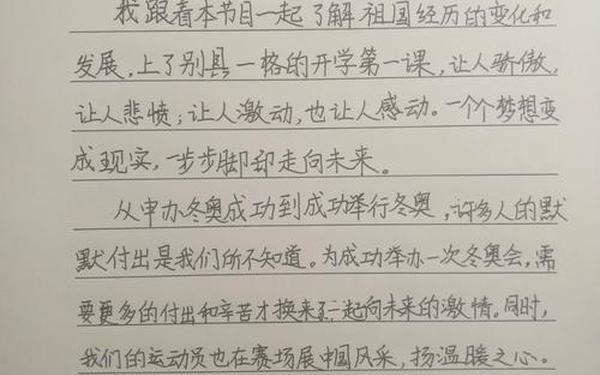 我跟着本节目一起了解祖国经历的变化和
发展,上了别县一格的开学第一课,让人骄傲,
让人悲愤;让人激动,也让人感动。一个个梦想变
成现实,一步步脚却走向未来。
从申办冬奥成功到成功举行冬奥,许多人的默
默付出是我们所不知道。为成功举办一次冬奥会,需
要更多的付出和辛苦才换来了一起向未来的激情。同时,
我们的运动员也在赛场展中国风采,扬温暖之心。